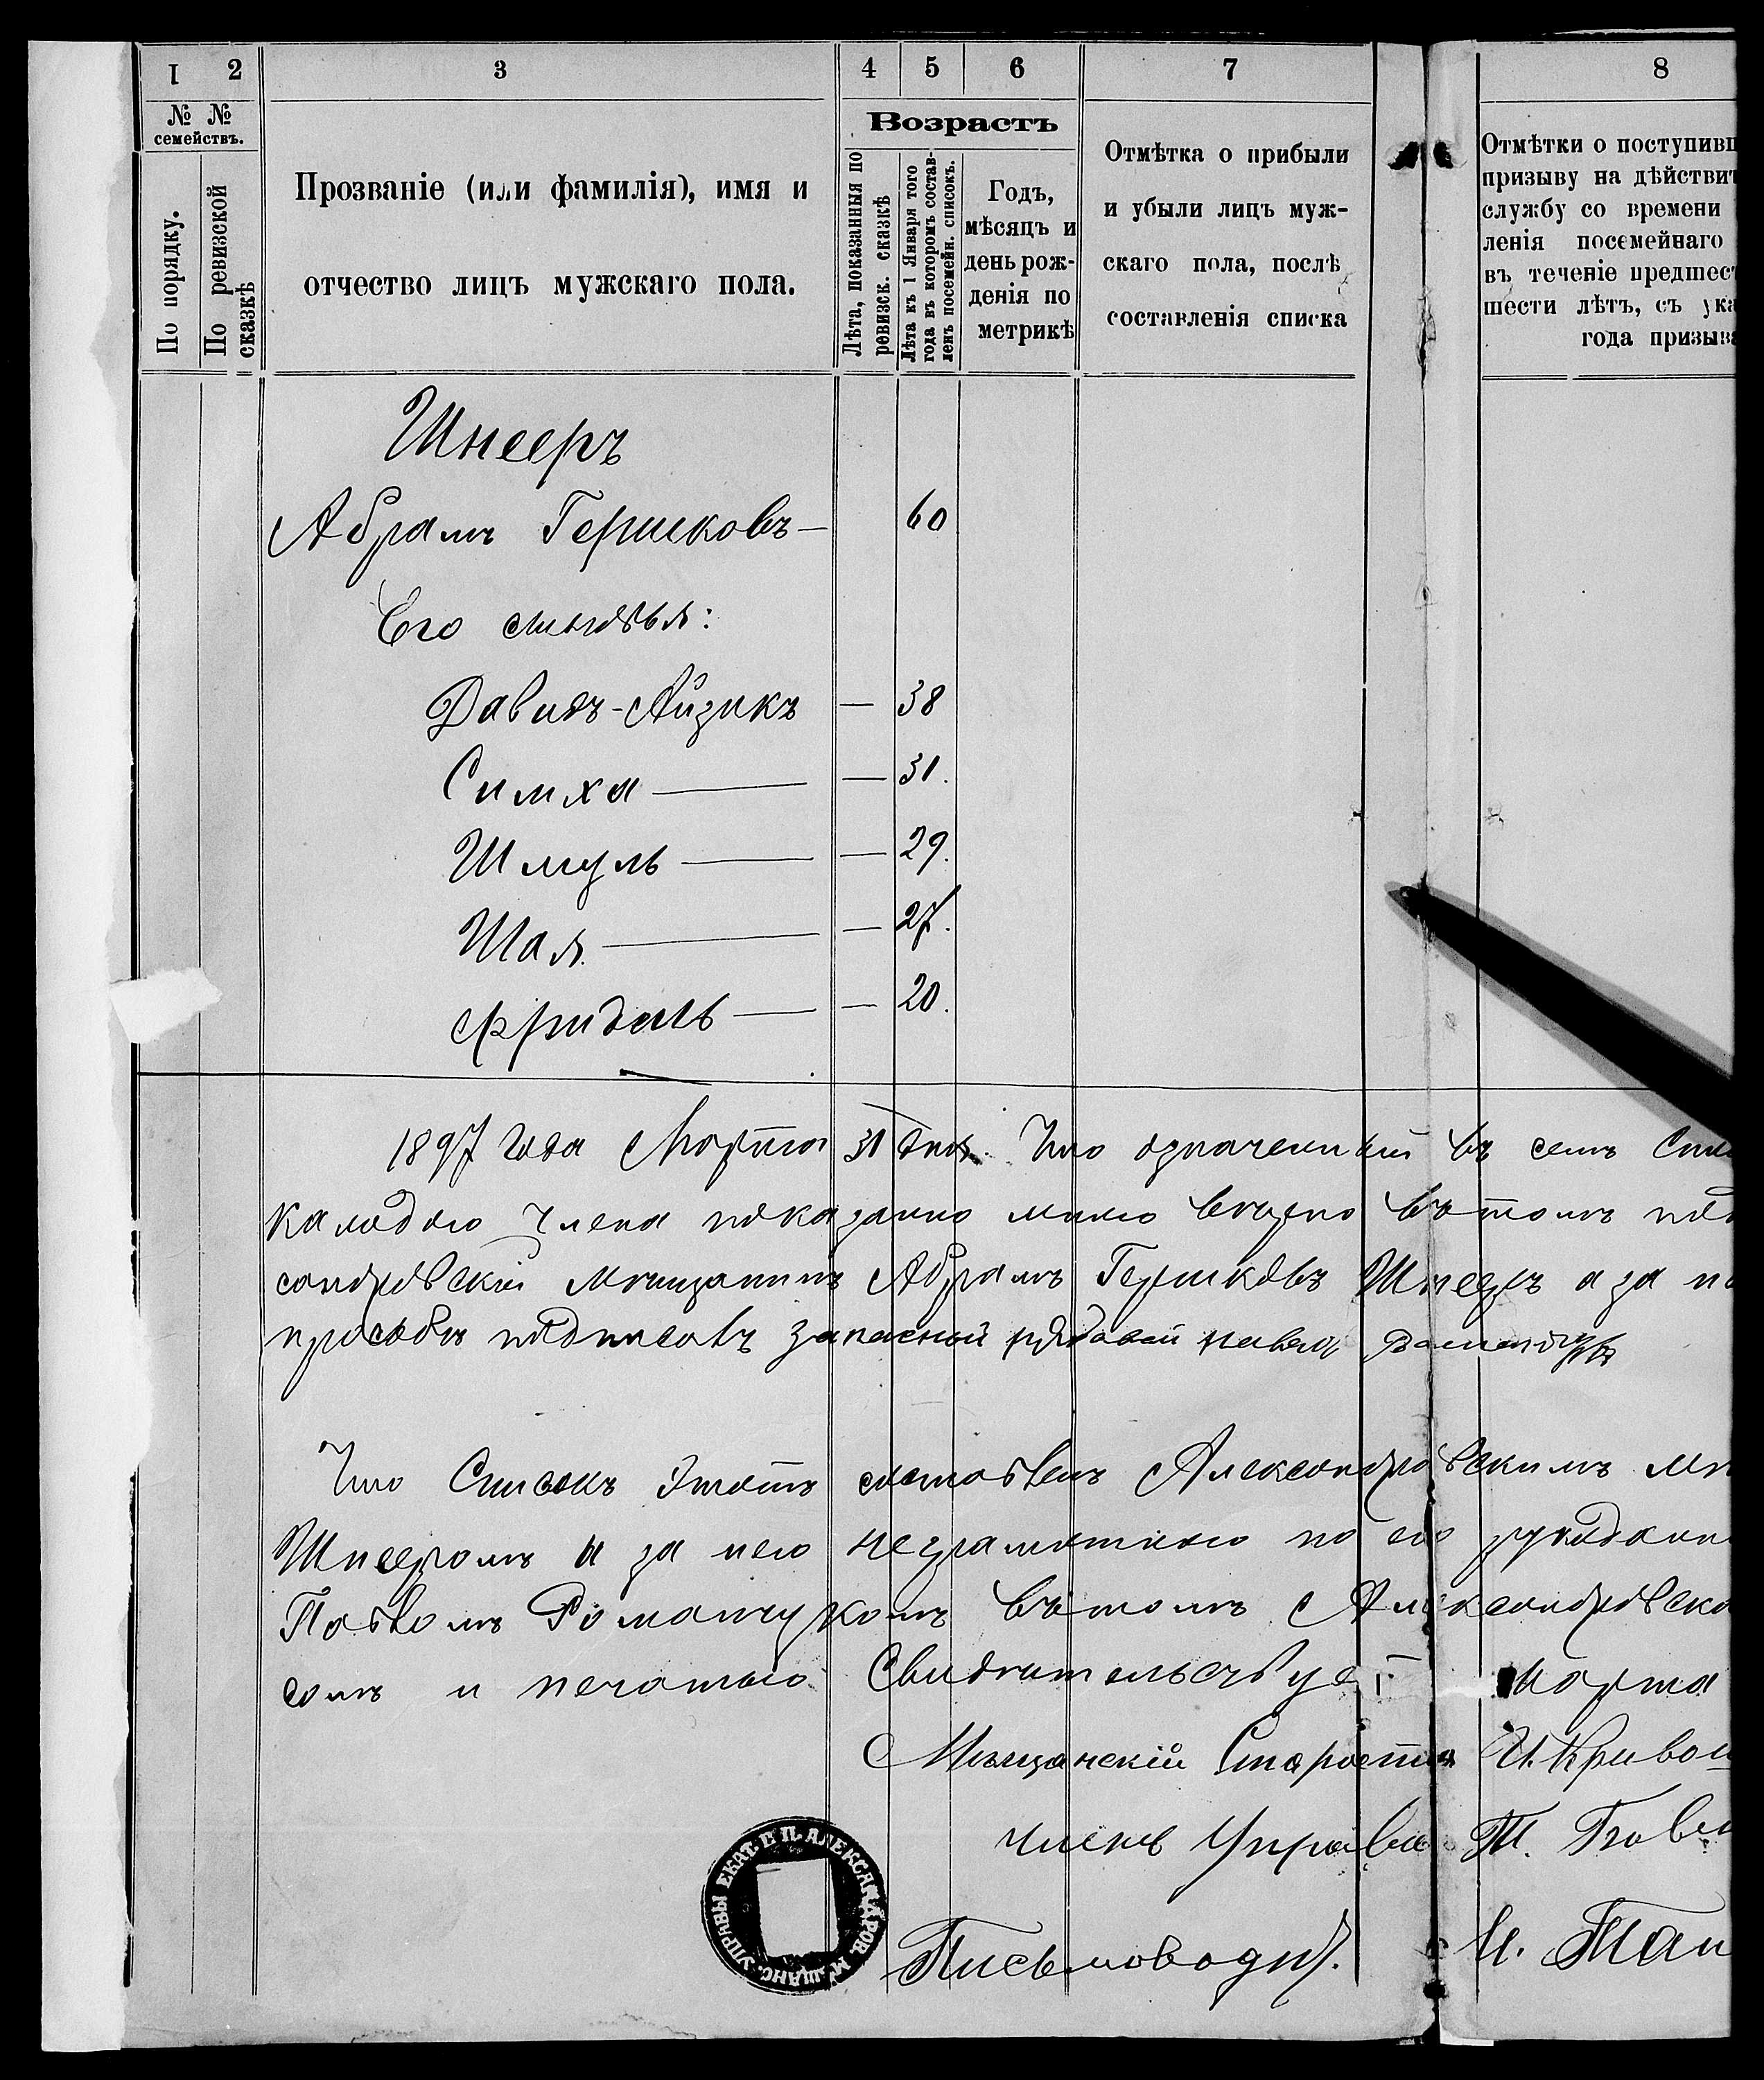 1 2 3 4 5 6 7 8
№ № семействъ.
По порядку.
По ревизской сказкѣ
Прозваніе (или фамилія), имя и
отчество лицъ мужскаго пола.
Возрастъ
Лѣта, показанныя по
ревизск. сказкѣ
Лѣта къ 1 Января того
года въ которомъ состав-
ленъ посемейн. списокъ.
Годъ,
мѣсяцъ и
день рож-
денія по
метрикѣ
Отмѣтка о прибыли
и убыли лицъ муж-
скаго пола, послѣ
составленія списка
Отмѣтки о поступивш
призыву на дѣйствит
службу со времени
ленія посемейнаго
въ теченіе предшест
шести лѣтъ, съ ука
года призыва
Шнееръ
Абрамъ Гершковъ — 60
Его сыновья:
Давидъ-Айзикъ — 38
Симха — — 31.
Шмуль — — 29.
Шая — — 27.
Фридель — — 20.
1897 года Марта 31 дня. Что означенный въ семъ Спис
каждого члена показанно мною верно въ томъ под
сандровскій мещанинъ Абрамъ Гершковъ Шнееръ а за не
просьбы подписовъ запасный рядовой Павел
Что Списокъ этотъ составленъ Александровскимъ мѣ
Шнееромъ а за него неграмотного по его рукодан
Павломъ Романчукомъ въ томъ Александровско
сомъ и печатью Свидѣтельствует Марта
Мѣщанскій Староста И. Кривош
Члены Управы Т.
Письмоводит. И. Тан
УПРАВЫ ЕКАТ. Г. П. АЛЕКСАНДРОВ. МѢЩАНС.